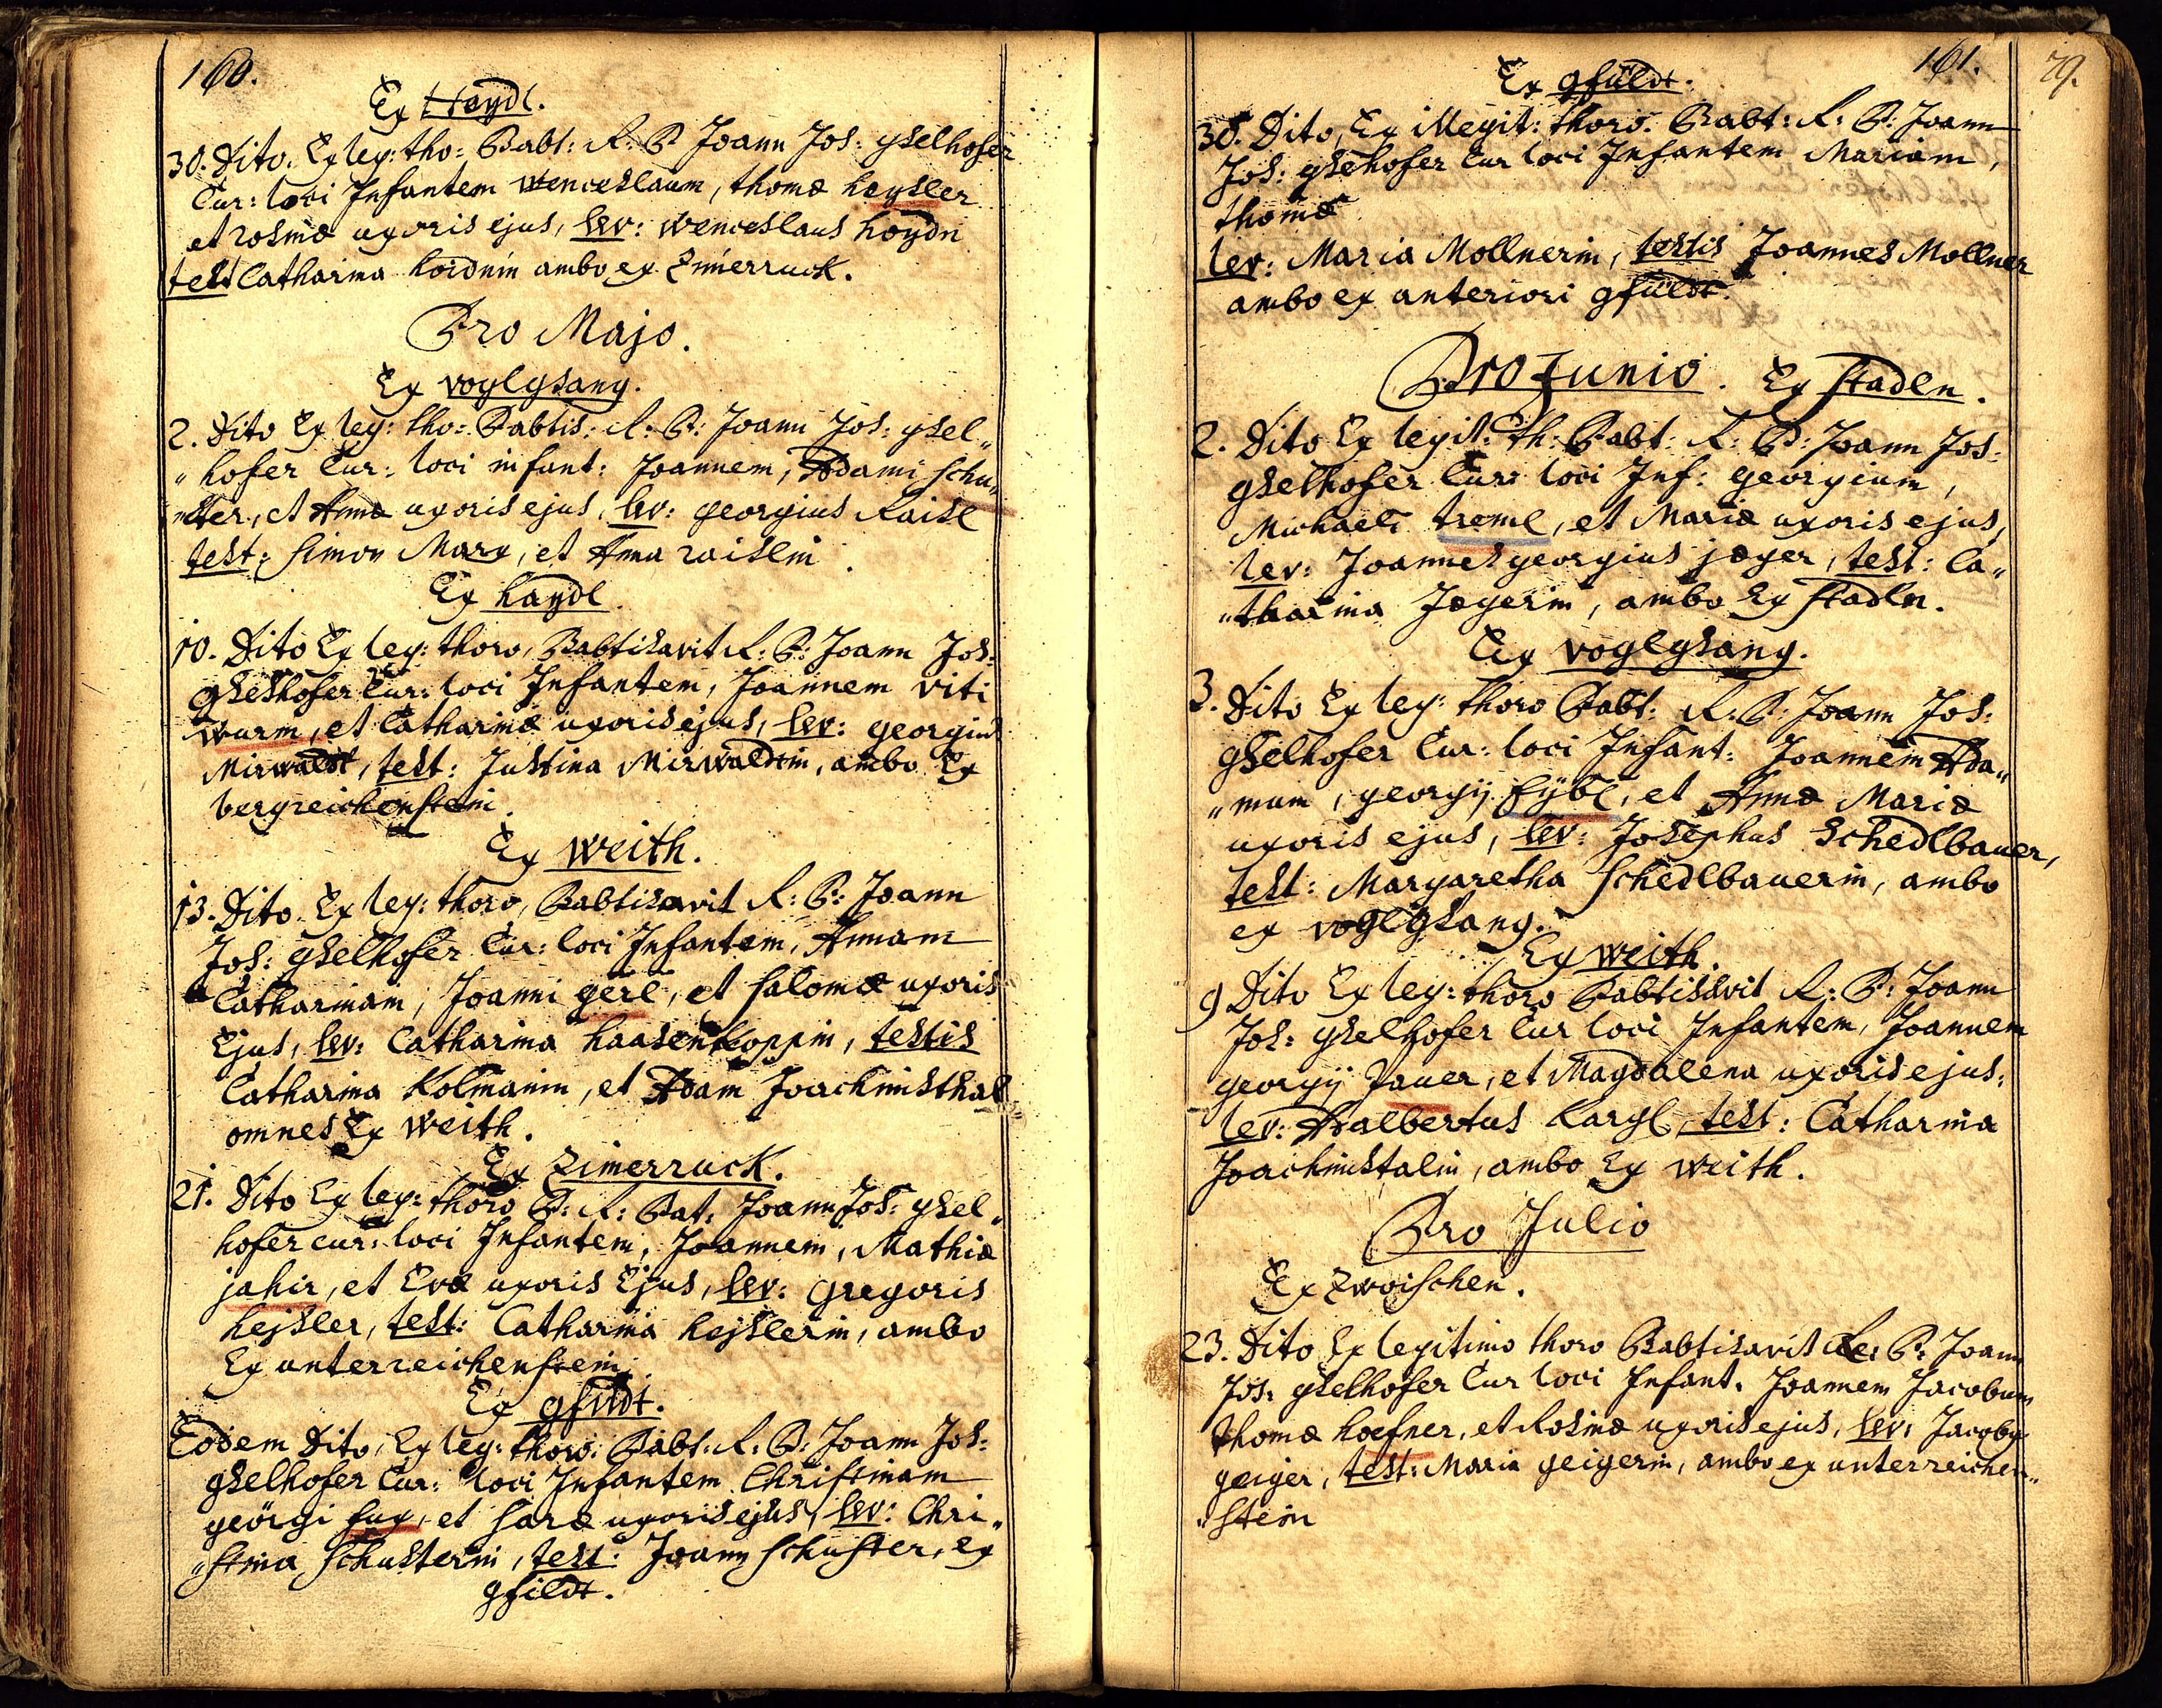 160.
Ex Haydl.
30. Dito. Ex leg: tho: Babt: R: P Joann Jos: gselhofer
Cur: loci Infantem Wenceslaum, thomæ haysler
et rosinæ uxoris ejus, lev: wenceslaus hoydn
test Catharina hoidnin ambo ex Zimerruck.
Pro Majo.
Ex voglgsang.
2. Dito Ex leg: tho: Babtis: R: P: Joann Jos: gsel„
„hofer Cur: loci infant: Joannem, Adami Schu„
„ster, et Annæ uxoris ejus, lev: georgius Raisl
test: Simon Marx, et Anna raislin.
Ex haydl.
10. Dito Ex leg: thoro, Babtisavit R: P: Joann Jos:
gselhofer Cur: loci Infantem, Joannem Viti
wurm, et Catharinæ uxoris ejus, lev: georgius
Mirwaldt, test: Justina Mirwaldtin, ambo Ex
bergreichenstein.
Ex weith.
13. Dito Ex leg: thoro, Babtisavit R: P: Joann
Jos: gselhofer Cur: loci Infantem, Annam
Catharinam, Joanni gerl, et Salomæ uxoris
Ejus, lev: Catharina haasenkoppin, testis
Catharina Kolmanin, et Adam Joachimsthal
omnes Ex weith.
Ex Zimerruck.
21. Dito Ex leg: thoro P: R: Bat: Joann Jos: gsel„
hofer cur: loci Infantem, Joannem, Mathiæ
jahir, et Evæ uxoris Ejus, lev: gregoris
hejsler, test: Catharina hejslerin, ambo
Ex unterreichenstein.
Ex gfildt.
Eodem Dito, Ex leg: thoro: Babt: R: P: Joann Jos:
gselhofer Cur: loci Infantem Christinam
geörgi fux, et Saræ uxoris ejus, lev: Chri„
„stina Schusterin, test: Joann Schuster, ex
gfildt.
161.
79.
Ex gfüldt.
30. Dito, Ex illegit: thoro. Babt: R: P: Joann
Jos: gsehofer Cur loci Infantem Mariam,
thomæ
lev: Maria Mollnerin, testis Joannes Mollner
ambo ex anteriori gfüldt.
Pro Junio. Ex Stadln.
2. Dito Ex legit: th: Babt: R: P: Joann Jos:
gselhofer Cur: loci Inf: georgium,
Michaeli treml, et Mariæ uxoris ejus,
lev: Joannes georgius jæger, test: Ca„
„tharina Jægerin, ambo Ex Stadln.
Ex voglgsang.
3. Dito Ex leg: thoro Babt: R: P: Joann Jos:
gselhofer Cur: loci Infant: Joannem Ada„
„mum, georgij Eÿbl, et Annæ Mariæ
uxoris ejus, lev: Josephus Schedlbauer,
test: Margaretha Schedlbauerin, ambo
ex voglgsang.
Ex weith.
9 Dito Ex leg: thoro Babtisavit R: P: Joann
Jos: gselhofer Cur loci Infantem, Joannem
georgij Pauer, et Magdalena uxoris ejus,
lev: Adalbertus Kargl, test: Catharina
Joachimstalin, ambo Ex weith.
Pro Julio
Ex Zwoischen.
23. Dito Ex legitimo thoro Babtisavit R: P: Joann
Jos: gselhofer Cur loci Infant: Joannem Jacobum
thomæ hoefner, et Rosinæ uxoris ejus, lev: Jacoby
geiger, test: Maria geigerin, ambo ex unterreichen„
„stein